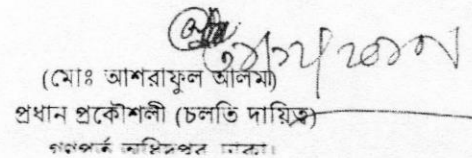 (মোঃ আশরাফুল আলম)
প্রধান প্রকৌশলী (চলতি দায়িত্ব)
গণপূর্ত অধিদপ্তর ঢাকা।